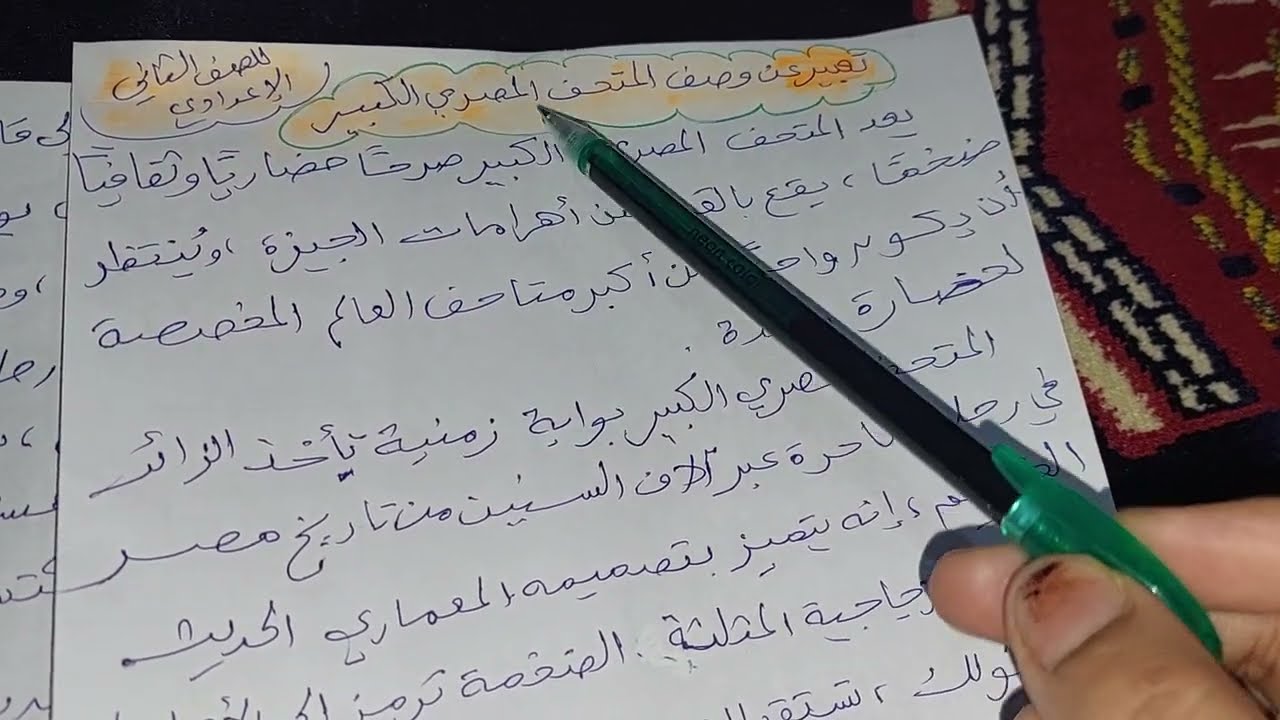 للصف الثاني
الإعدادي
تعبير عن وصف المتحف المصري الكبير
يعد المتحف المصري الكبير صرحًا حضاريًا وثقافيًا
ضخمًا، يقع بالقرب من أهرامات الجيزة، ويُنتظر
أن يكون واحدًا من أكبر متاحف العالم المخصصة
لحضارة
المتحف المصري الكبير بوابة زمنية تأخذ الزائر
في رحلة ساحرة عبر آلاف السنين من تاريخ مصر
إنه يتميز بتصميمه المعماري الحديث
المثلثة الضخمة ترمز إلى